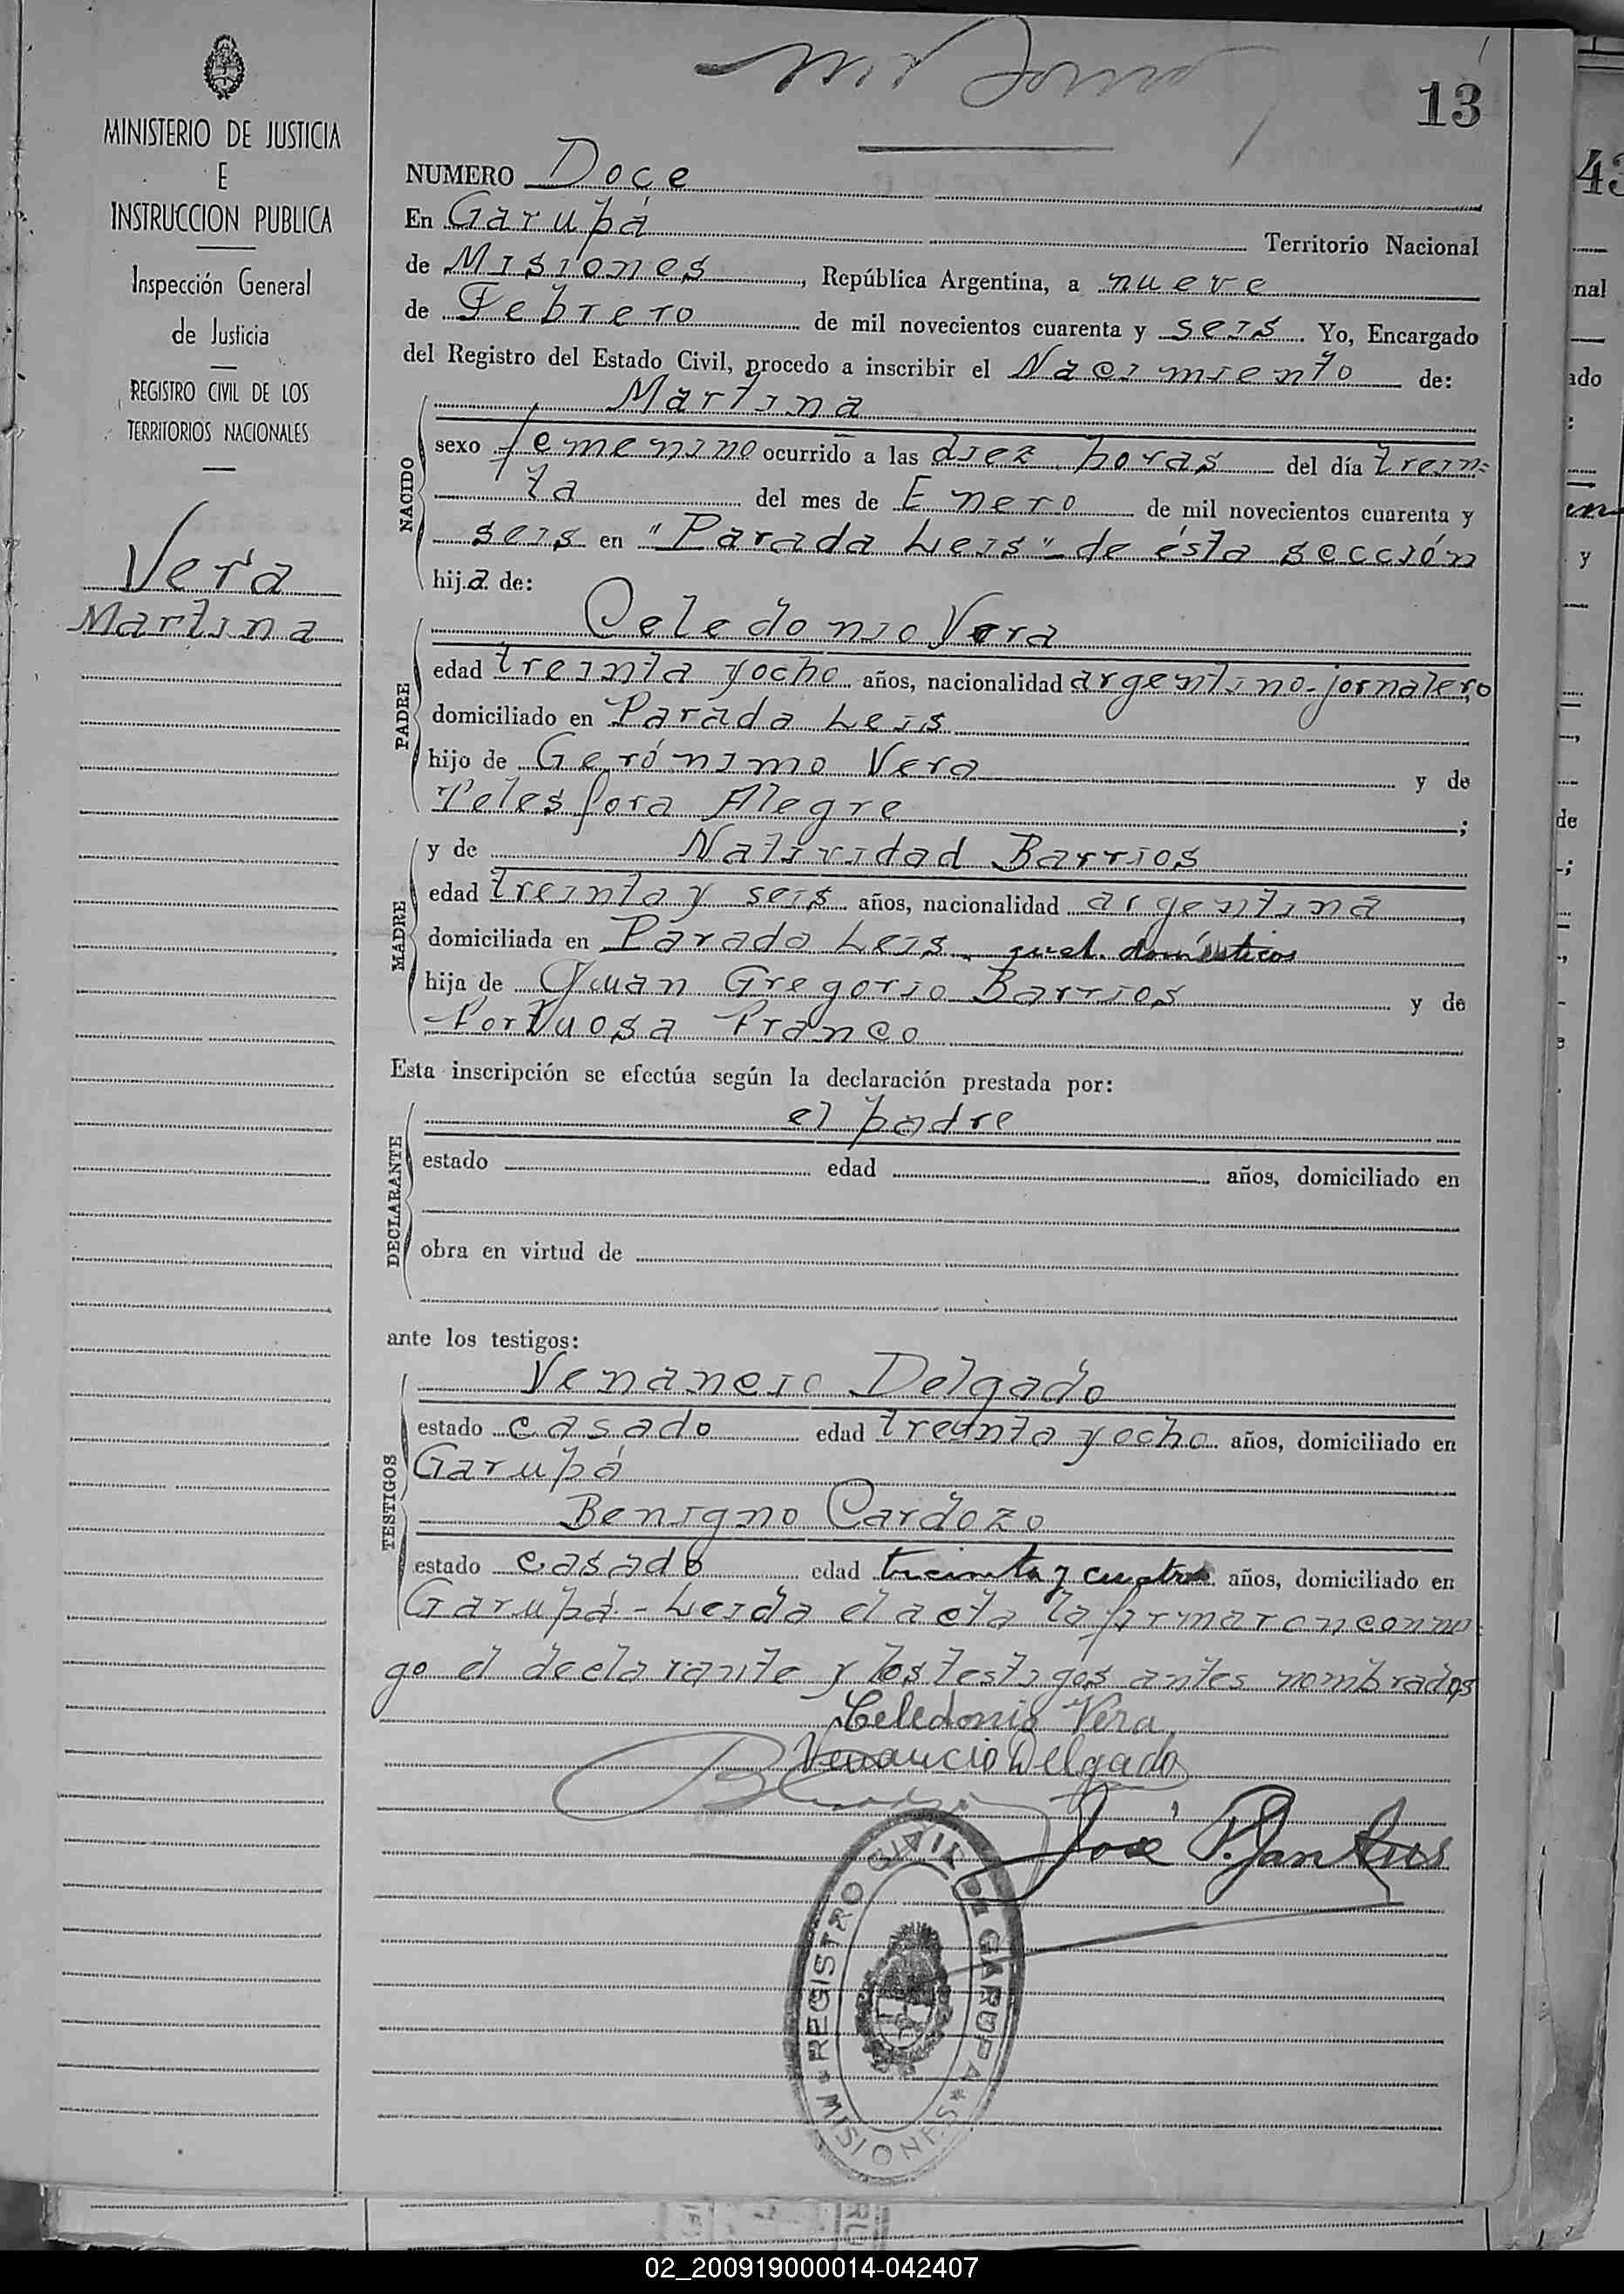 13
MINISTERIO DE JUSTICIA
E
INSTRUCCION PUBLICA
Inspección General
de Justicia
REGISTRO CIVIL DE LOS
TERRITORIOS NACIONALES
Vera
Martina
NUMERO Doce
En Garupá Territorio Nacional
de Misiones, República Argentina, a nueve
de Febrero de mil novecientos cuarenta y seis. Yo, Encargado
del Registro del Estado Civil, procedo a inscribir el Nacimiento de:
NACIDO
Martina
sexo femenino ocurrido a las diez horas del día trein=
ta del mes de Enero de mil novecientos cuarenta y
seis en "Parada Leis" de ésta sección
hija de:
PADRE
Celedonio Vera
edad treinta y ocho años, nacionalidad argentino-jornalero
domiciliado en Parada Leis
hijo de Gerónimo Vera y de
Telesfora Alegre;
MADRE
y de Natividad Barrios
edad treinta y seis años, nacionalidad argentina,
domiciliada en Parada Leis. queh. domésticos
hija de Juan Gregorio Barrios y de
Fortuosa Franco
Esta inscripción se efectúa según la declaración prestada por:
DECLARANTE
el padre
estado edad años, domiciliado en
obra en virtud de
ante los testigos:
TESTIGOS
Venancio Delgado
estado casado edad treinta y ocho años, domiciliado en
Garupá
Benigno Cardozo
estado casado edad treinta y cuatro años, domiciliado en
Garupá - Leida el acta la firmaron conmi=
go el declarante y los testigos antes nombrados
Celedonio Vera
Venancio Delgado
José P.
REGISTRO CIVIL DE GARUPA
* MISIONES *
43
nal
ado
:
en
y
de
;
02_200919000014-042407